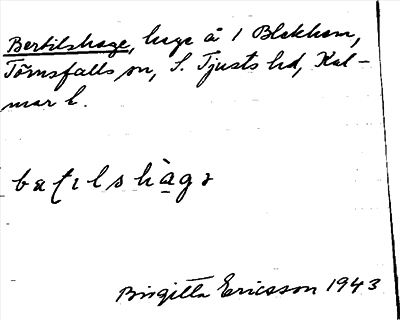 Bertilshage, hage å 1 Blekhem,
Törnsfalls sn, S. Tjusts hd, Kal-
mar l.
Birgitta Ericsson 1943